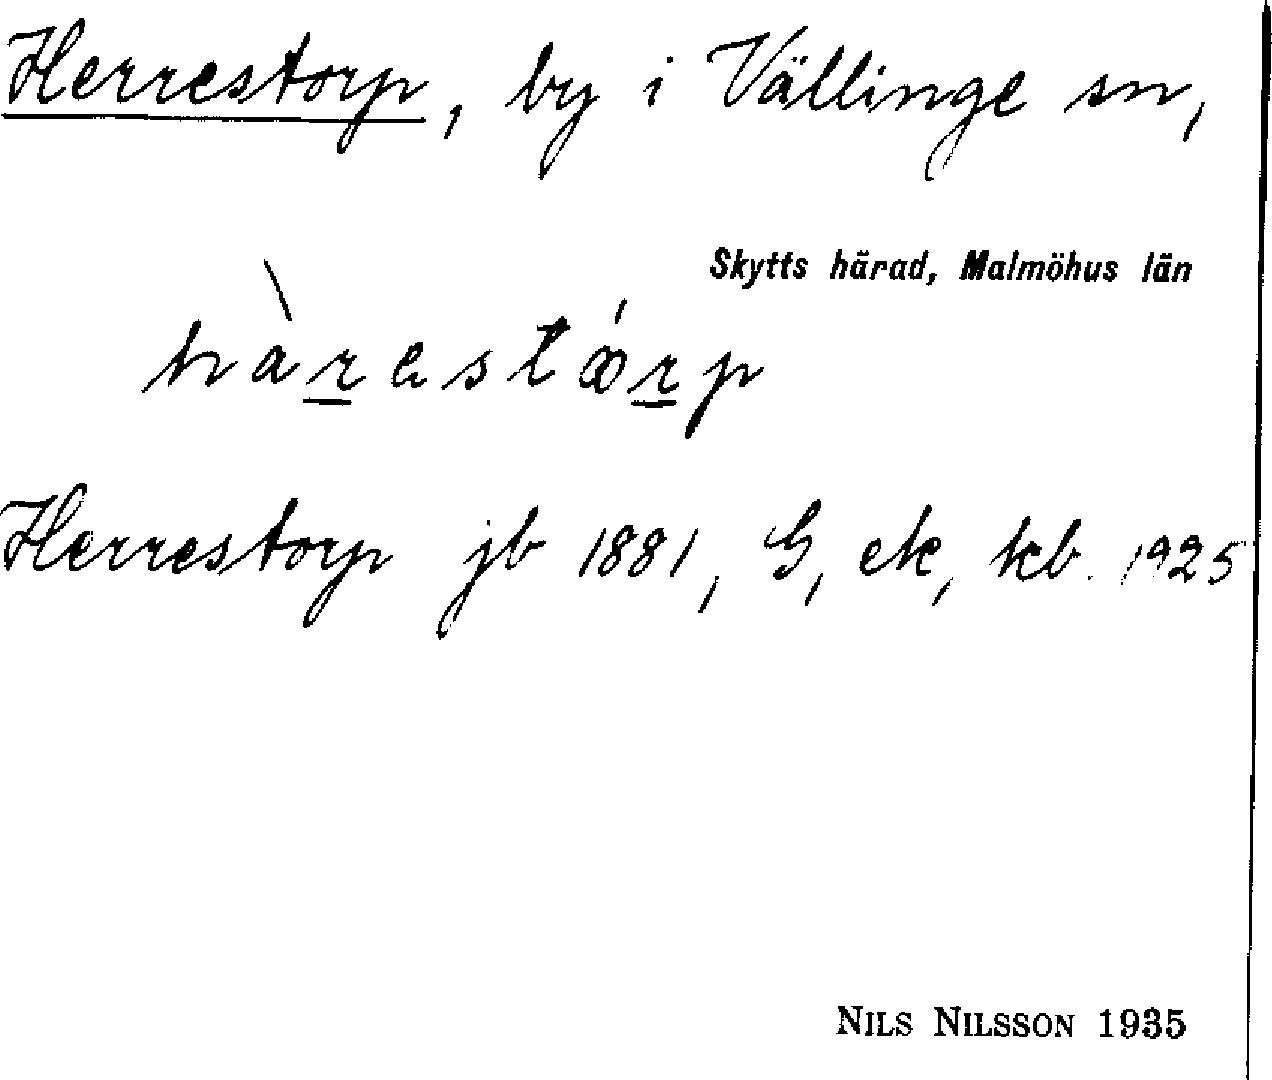 Herrestorp, by i Vällinge sn,
Skytts härad, Malmöhus län
hàrestǿrp
Herrestorp jb 1881, G, ek, kb. 1925
NILS NILSSON 1935